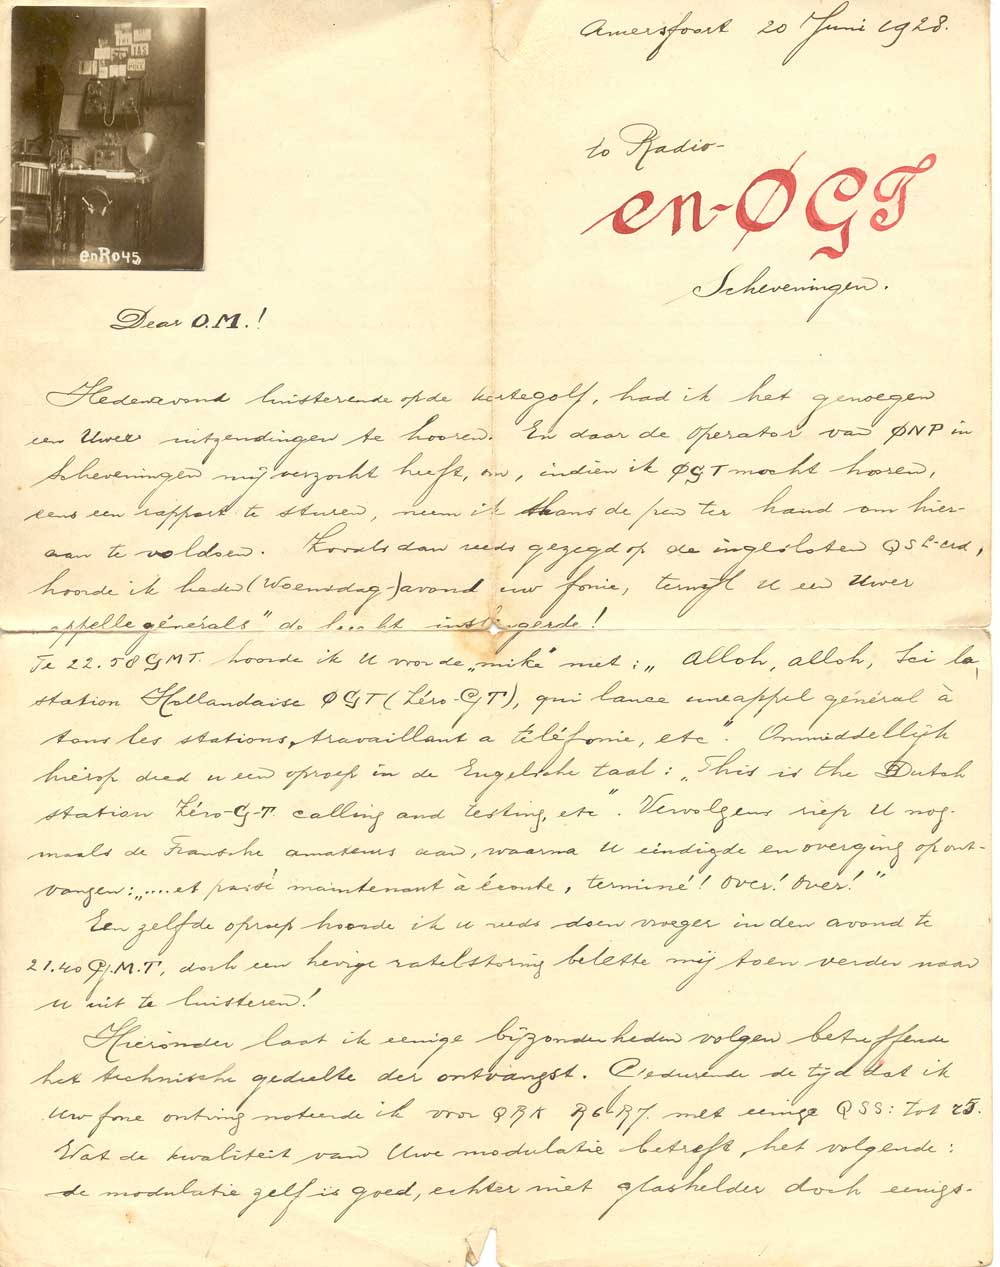 Amersfoort 20 Juni 1928.
to Radio-
en-ØGT
Scheveningen.
enR045
Dear O.M.!
Hedenavond luisterende op de kortegolf, had ik het genoegen
een Uwer uitzendingen te hooren. En daar de operator van ØNP in
Scheveningen mij verzocht heeft, om, indien ik ØGT mocht hooren,
eens een rapport te sturen, neem ik thans de pen ter hand om hier-
aan te voldoen. Zooals dan reeds gezegd op de ingesloten QSL-crd,
hoorde ik heden (Woensdag-)avond uw fonie, terwijl U een Uwer
"appelle générals" de lucht inslingerde!
Te 22.58 GMT. hoorde ik U voor de „mike" met: „Alloh, alloh, Ici la
station Hollandaise ØGT (Zéro-GT), qui lance une appel général à
tous les stations, travaillant a téléfonie, etc". Onmiddellijk
hierop deed u een oproep in de Engelsche taal: „This is the Dutch
station Zéro-G-T calling and testing, etc". Vervolgens riep U nog-
maals de Fransche amateurs aan, waarna U eindigde en overging op ont-
vangen: „....et passé maintenant à écoute, terminé! Over! Over!"
Een zelfde oproep hoorde ik u reeds doen vroeger in den avond te
21.40 G.M.T, doch een hevige ratelstoring belette mij toen verder naar
u uit te luisteren!
Hieronder laat ik eenige bijzonderheden volgen betreffende
het technische gedeelte der ontvangst. Gedurende de tijd dat ik
Uw fone ontving noteerde ik voor QRK R6-R7. met eenige QSS: tot r5.
Wat de kwaliteit van Uwe modulatie betreft, het volgende:
de modulatie zelf is goed, echter niet glashelder doch eenigs-